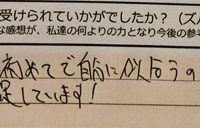 受けられていかがでしたか？（ズ
な感想が、私達の何よりの力となり今後の参考
初めてで自分に似合うの
足しています！